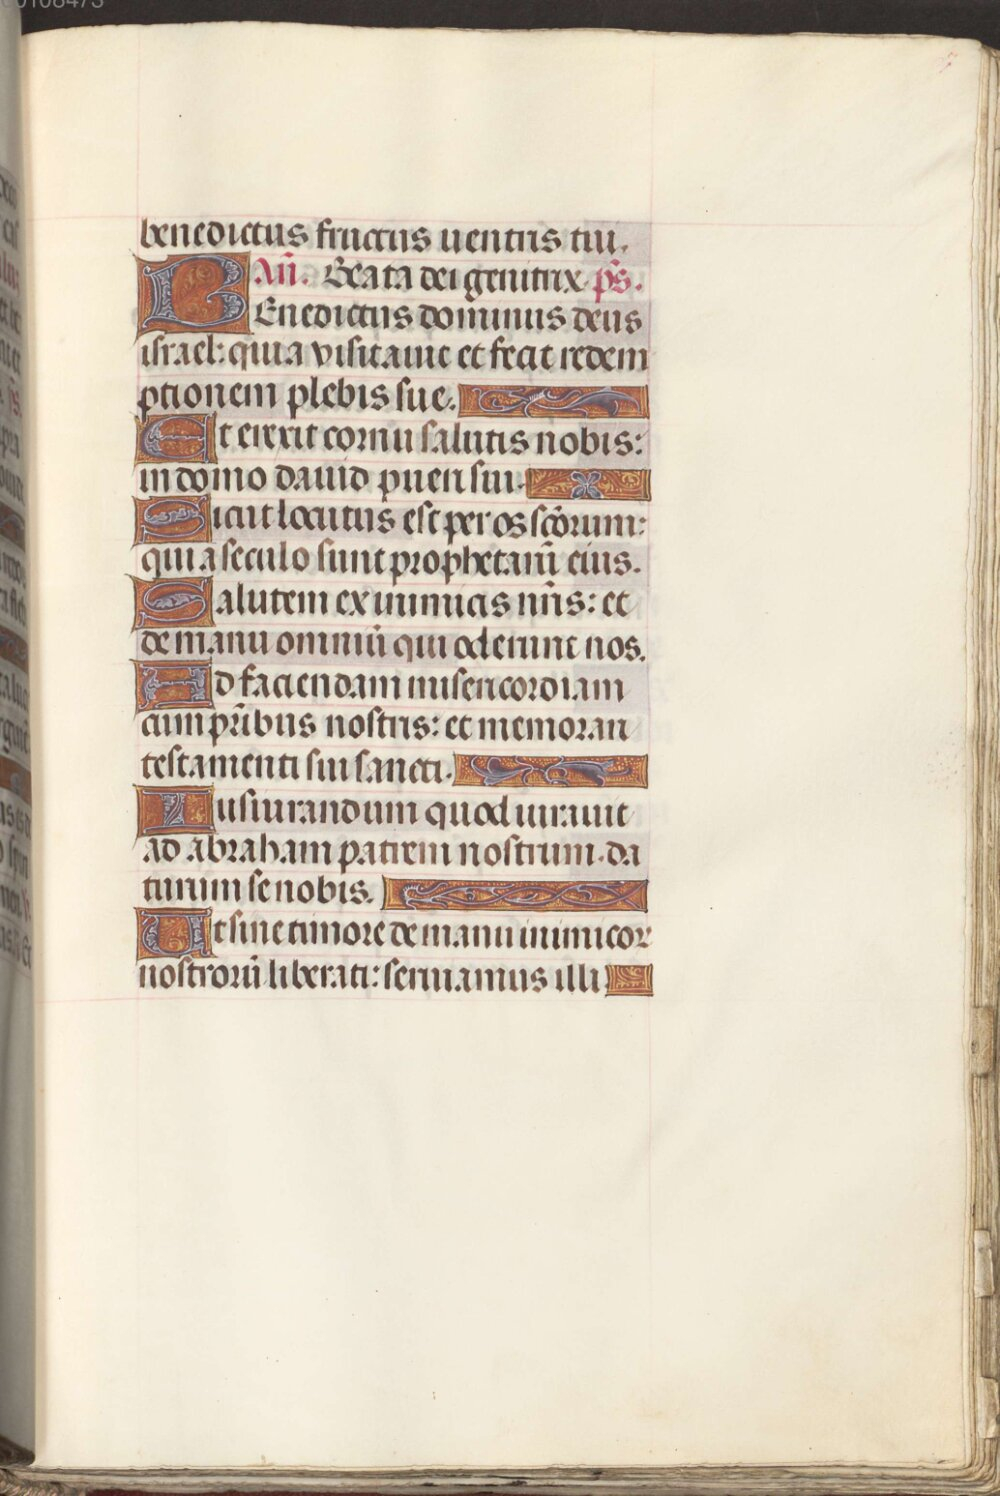 benedictus fructus uentris tui.
Añ. Beata dei genitrix. ps̄.
BEnedictus dominus deus
israel: quia visitauit et fecit redem
ptionem plebis sue.
Et erexit cornu salutis nobis:
in domo dauid pueri sui.
Sicut locutus est per os sc̄orum:
qui a seculo sunt prophetarū eius.
Salutem ex inimicis nr̄is: et
de manu omniū qui oderunt nos.
Ad faciendam misericordiam
cum pr̄ibus nostris: et memorari
testamenti sui sancti.
Iusiurandum quod iurauit
ad abraham patrem nostrum. da
turum se nobis.
Ut sine timore de manu inimicoꝝ
nostrorū liberati: seruiamus illi